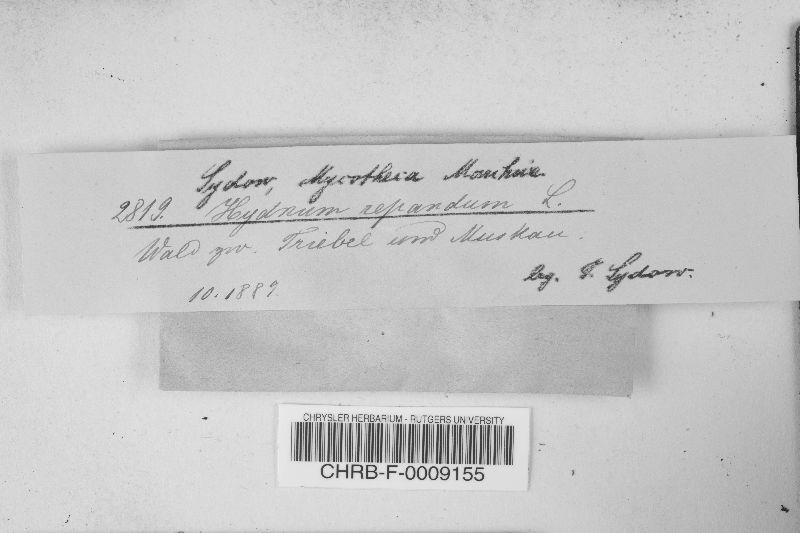 Sydow, Mycotheca Marchica
2819. Hydnum repandum L.
Wald zw. Triebel und Muskau.
leg. P. Sydow.
10. 1889.
CHRYSLER HERBARIUM - RUTGERS UNIVERSITY
CHRB-F-0009155